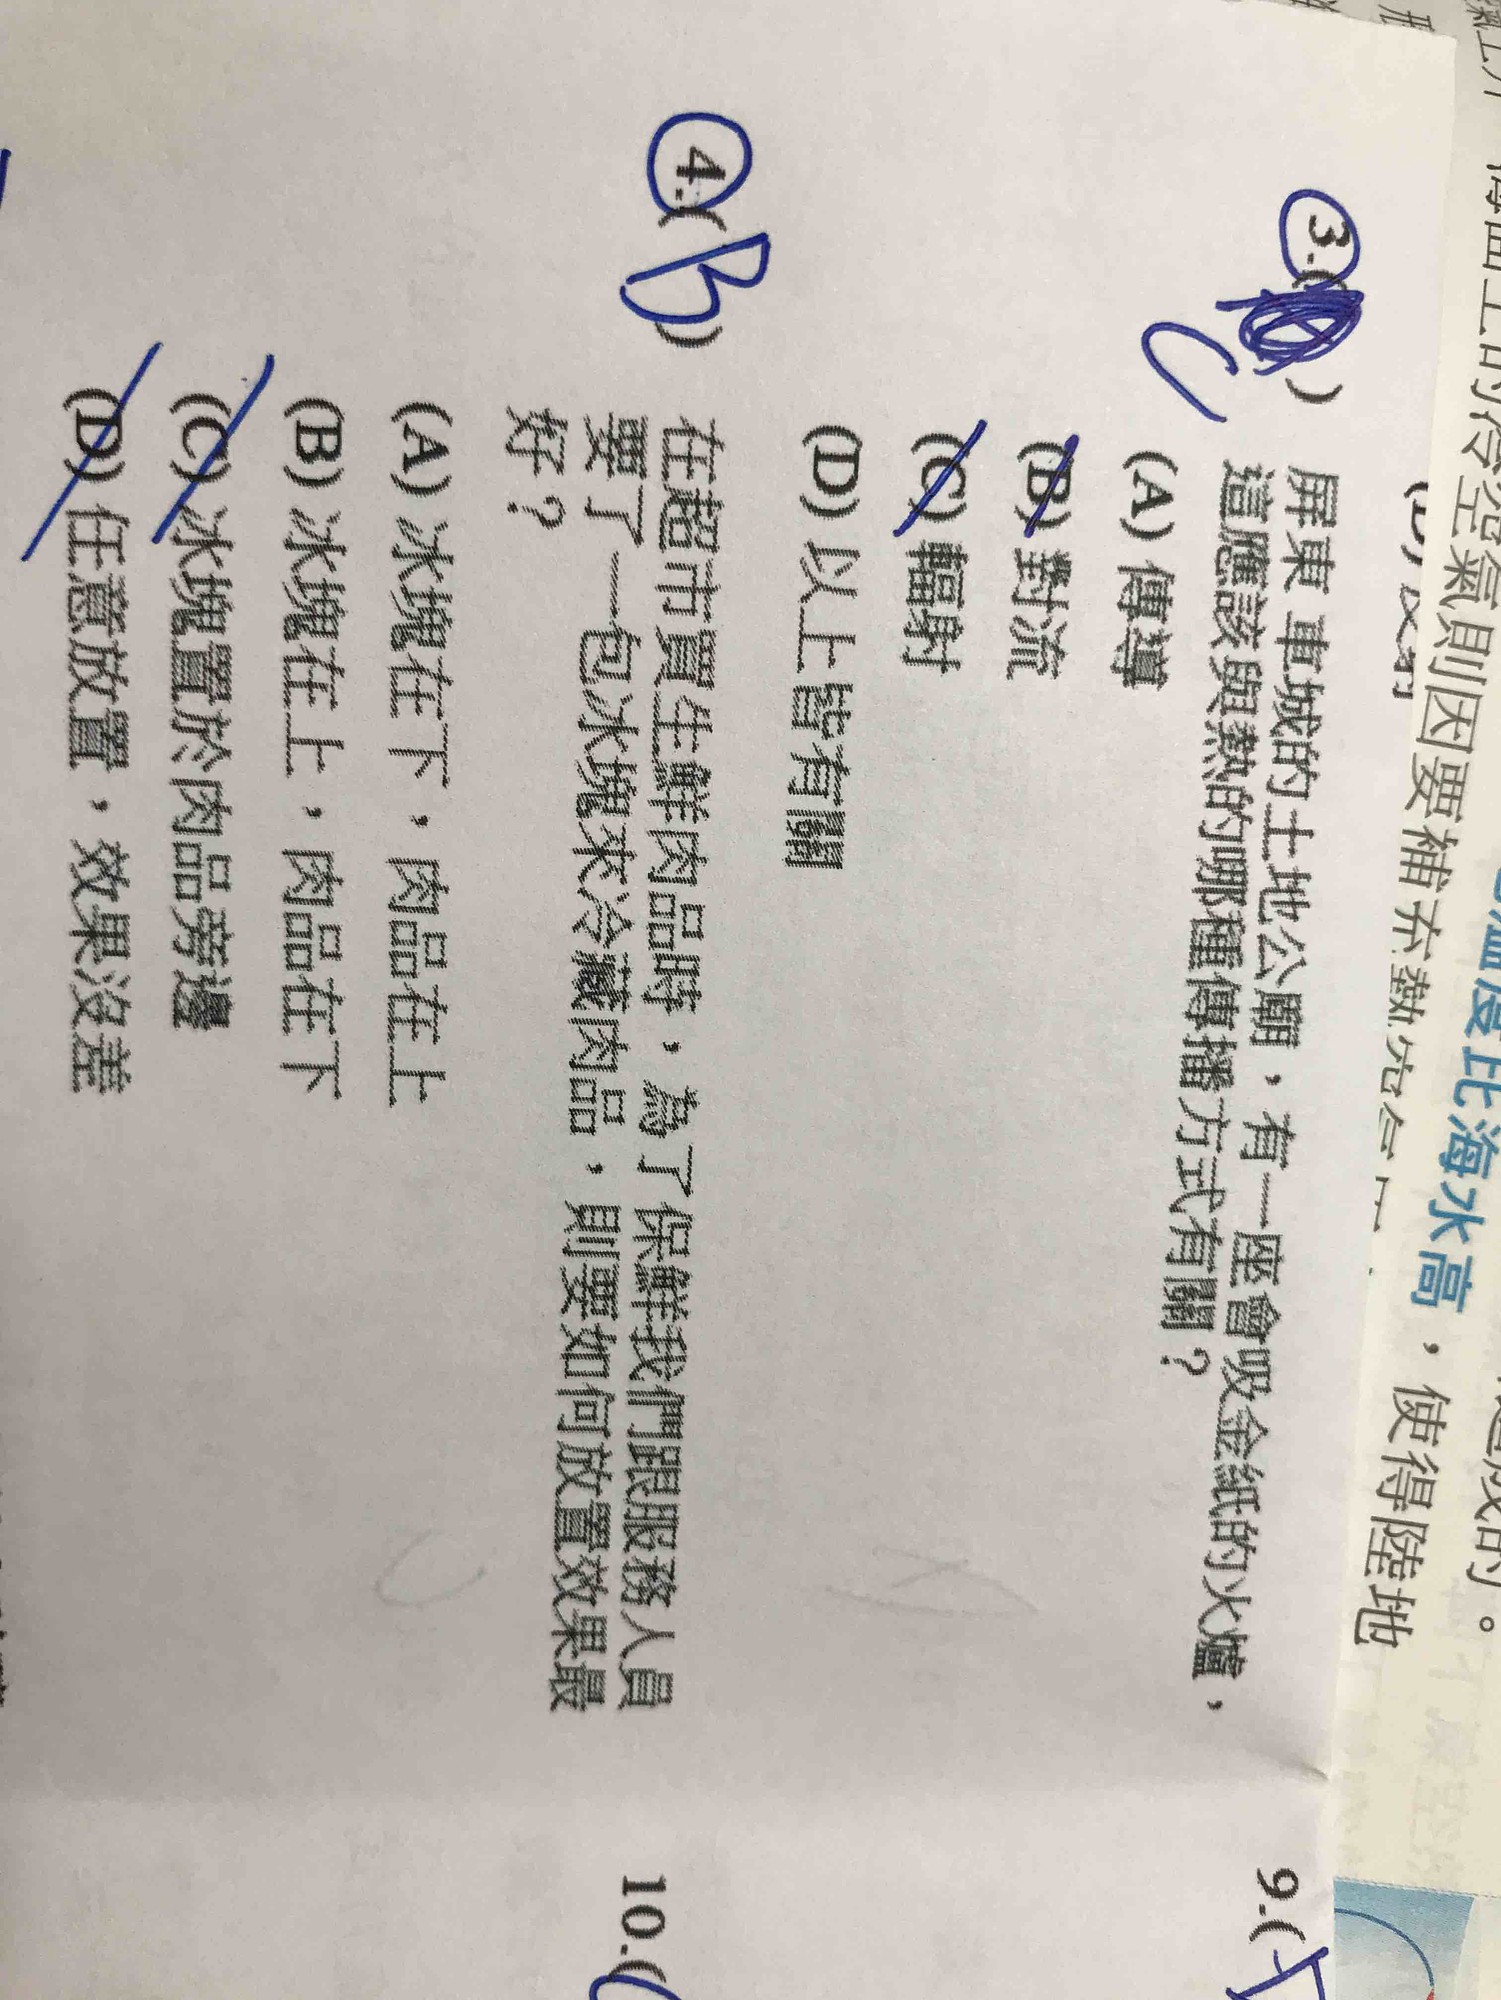 海面上的冷空氣則因要補充熱空气
溫度比海水高，使得陸地
3.( ) C 屏東 車城的土地公廟，有一座會吸金紙的火爐，
這應該與熱的哪種傳播方式有關？
(A) 傳導
(B) 對流
(C) 輻射
(D) 以上皆有關
4.(B) 在超市買生鮮肉品時，為了保鮮我們跟服務人員
要了一包冰塊來冷藏肉品，則要如何放置效果最
好？
(A) 冰塊在下，肉品在上
(B) 冰塊在上，肉品在下
(C) 冰塊置於肉品旁邊
(D) 任意放置，效果沒差
9.(
10.(